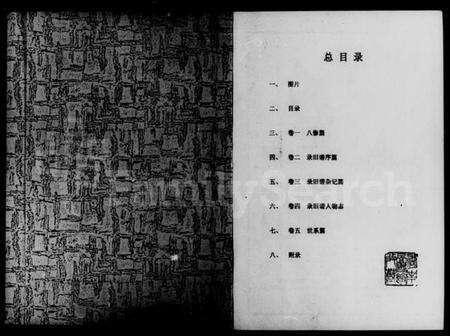 总目录
一、 图片
二、 目录
三、 卷一 八修篇
四、 卷二 录旧谱序篇
五、 卷三 录旧谱杂记篇
六、 卷四 录旧谱人物志
七、 卷五 世系篇
八、 附录
FamilySearch